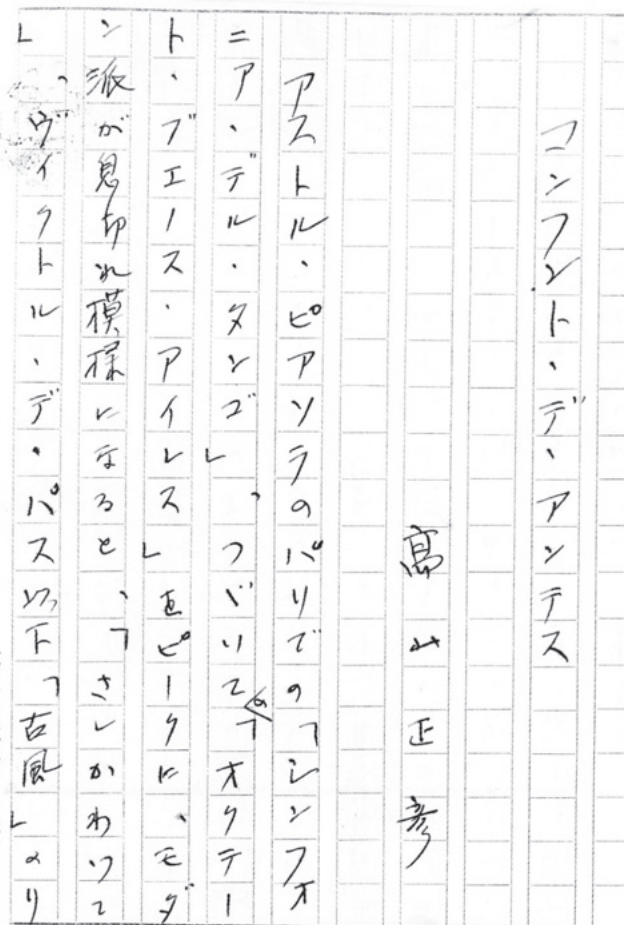 コンフント・デ・アンテス
高山正彦
アストル・ピアソラのパリでの「シンフォ
ニア・デル・タンゴ」、つづいての「オクテー
ト・ブエノス・アイレス」をピークに、モダ
ン派が息切れ模様になると、「さしかわって
」、ヴィクトル・デ・パス以下「古風」のり